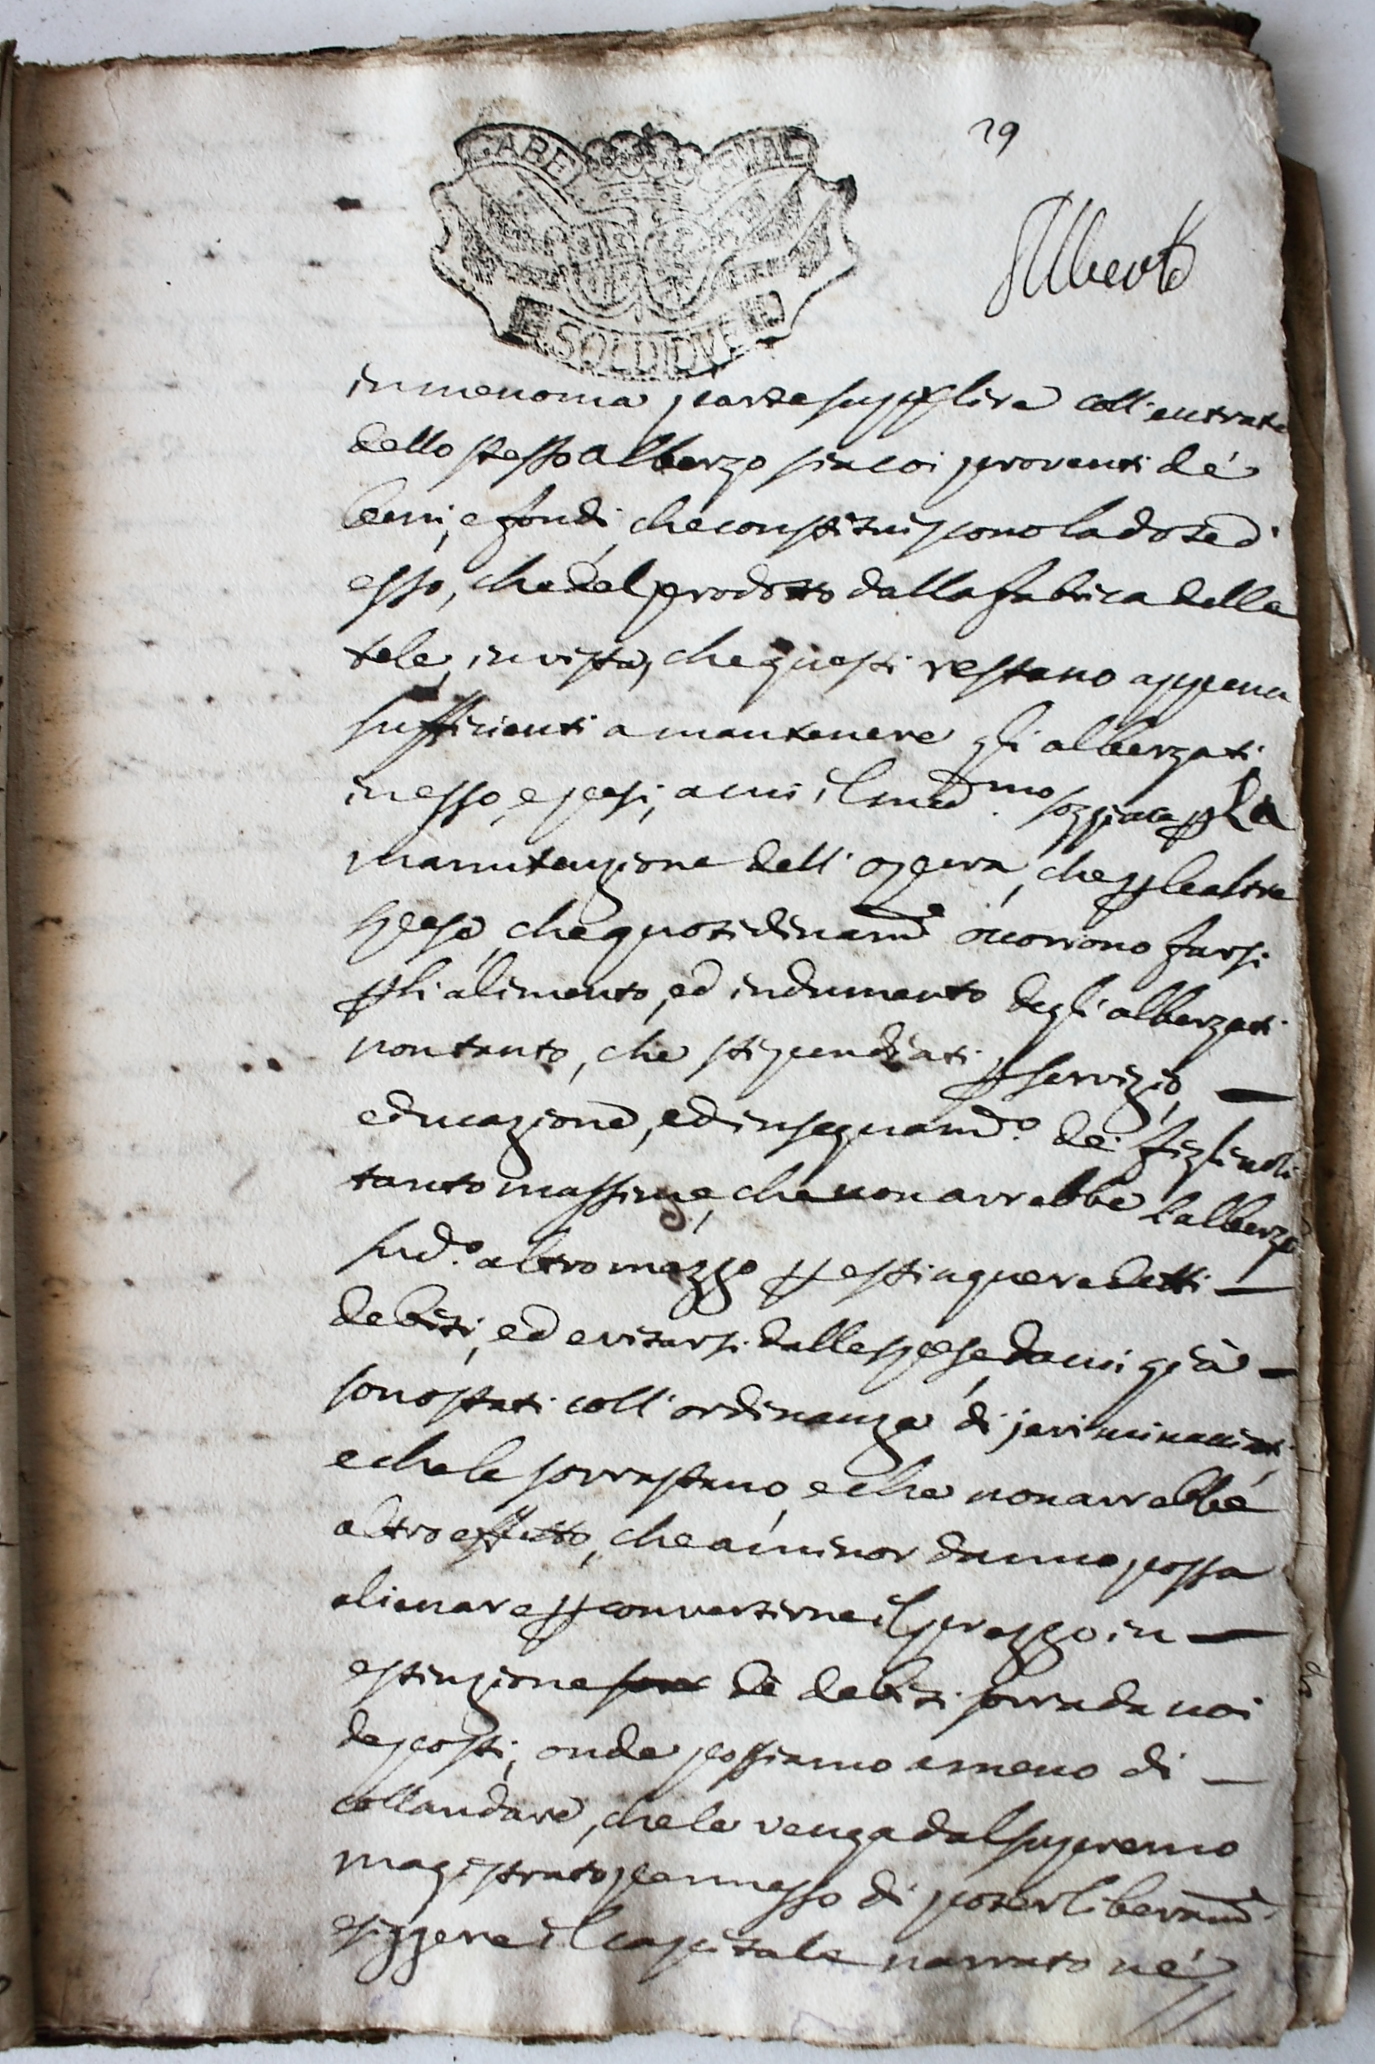 29
GABEL GNAL
Alberto
SOLDI DVE
in menoma parte supplire coll'entrate
dello stesso albergo sia coi proventi de'
beni, e fondi, che constituiscono la dote d'
esso, che del prodotto dalla fabrica delle
tele, in vista, che questi restano appena
sufficienti a mantenere gli albergati
in esso, e pesi, a cui il med.mo soggiace p la
manutenzione dell'opera, che p le altre
spese, che quotidinam.e occorrono farsi
p li alimento, ed indumento degli albergati
non tanto, che stipendiati p servizio, —
educazione, ed insegnam.o de' figliuoli
tanto massime, che non avrebbe l'albergo
sud.o altro mezzo p estinguere detti —
debiti, ed evitarsi dalle spese, da cui già —
sono stati coll'ordinanza di jeri minacciati
e che le sovrastano, e che non avrebbe
altro effetto, che a minor danno possa
alienare p convertirne il prezzo in —
estinzione de debiti sovra da noi
deposti, onde possiamo a meno di —
collaudare, che le venga dal supremo
magistrato permesso di poter liberam.e
esiggere il capitale narrato ne'